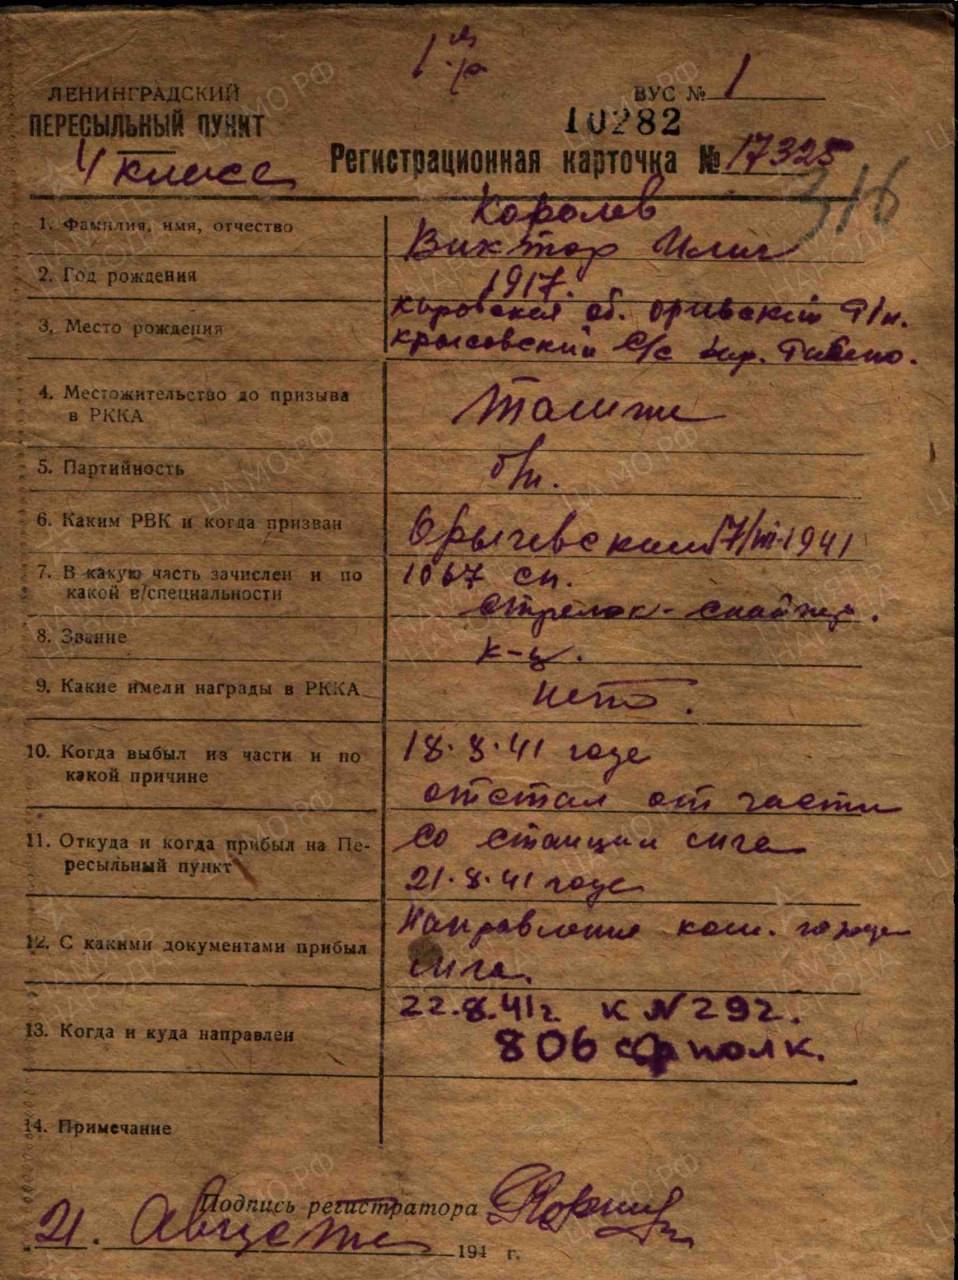 ЛЕНИНГРАДСКИЙ
ПЕРЕСЫЛЬНЫЙ ПУНКТ
4 класса
ВУС № 1
10282
Регистрационная карточка № 17325
316
1. Фамилия, имя, отчество
Королев
Виктор Илич
2. Год рождения
1917.
3. Место рождения
кировская об.
крысовский с/с
4. Местожительство до призыва
в РККА
5. Партийность
б/п.
6. Каким РВК и когда призван
1941
7. В какую часть зачислен и по
какой в/специальности
1067 сп.
стрелок-снайпер.
8. Звание
к-ц.
9. Какие имели награды в РККА
нето.
10. Когда выбыл из части и по
какой причине
18.8.41 года
отстал от части
11. Откуда и когда прибыл на Пе-
ресыльный пункт
со станции сига
21.8.41 года
12. С какими документами прибыл
Направления
сига.
13. Когда и куда направлен
22.8.41г. к N 292.
806 полк.
14. Примечание
Подпись регистратора
21. Августа 194 г.
ЦАМО.РФ
ПАМЯТЬ
НАРОДА